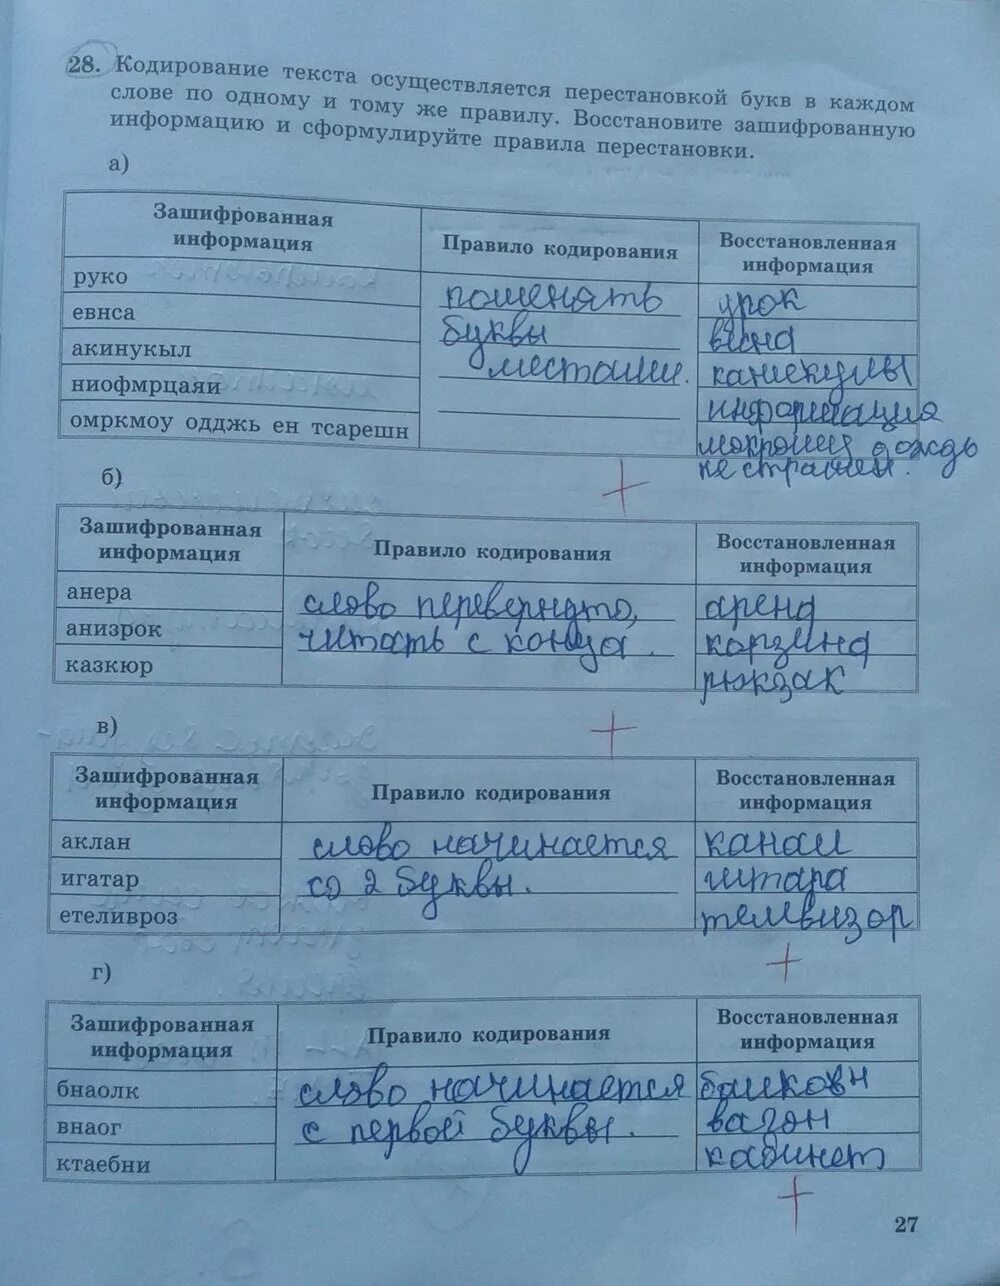 28. Кодирование текста осуществляется перестановкой букв в каждом
слове по одному и тому же правилу. Восстановите зашифрованную
информацию и сформулируйте правила перестановки.
а)
Зашифрованная информация
Правило кодирования
Восстановленная информация
руко
евнса
акинукыл
ниофмрцаяи
омркмоу одджь ен тсарешн
поменять
буквы
местами.
урок
весна
каникулы
информация
мокрому дождь
не страшен.
б)
Зашифрованная информация
Правило кодирования
Восстановленная информация
анера
анизрок
казкюр
слово перевернуто,
читать с конца.
арена
корзина
рюкзак
в)
Зашифрованная информация
Правило кодирования
Восстановленная информация
аклан
игатар
етеливроз
слово начинается
со 2 буквы.
канал
гитара
телевизор
г)
Зашифрованная информация
Правило кодирования
Восстановленная информация
бнаолк
внаог
ктаебни
слово начинается
с первой буквы.
вагон
кабинет
27